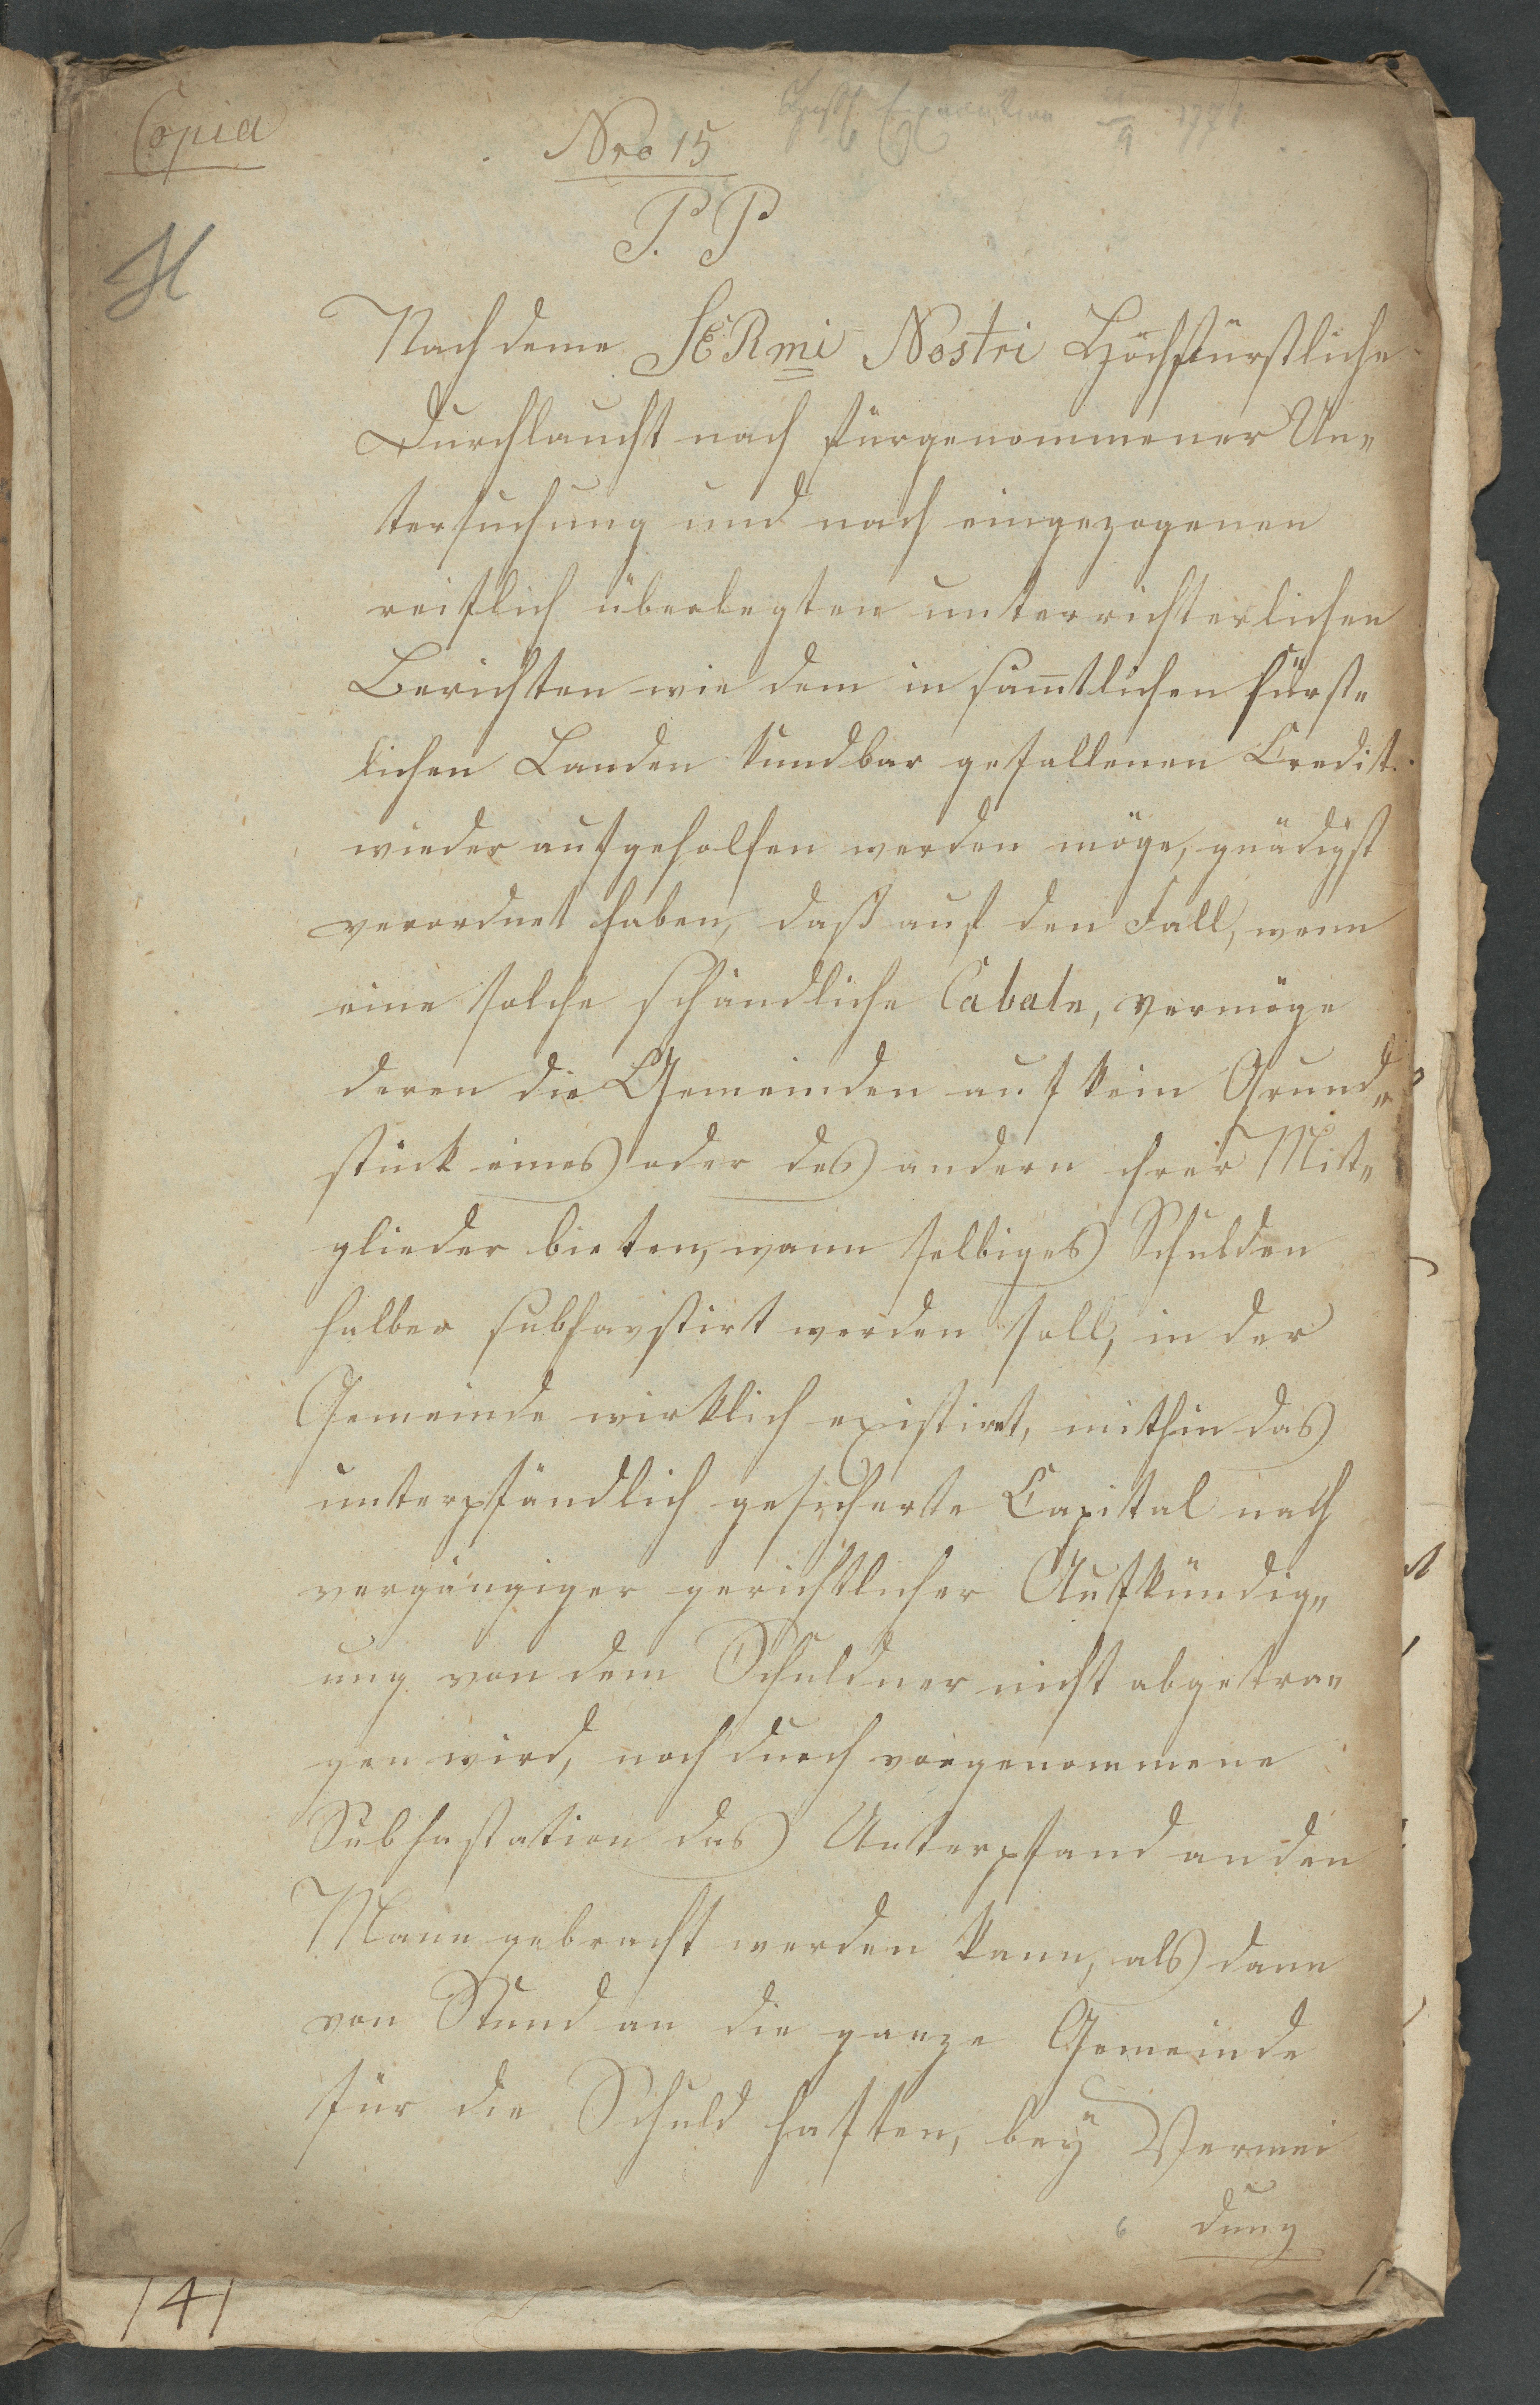 Copia
Nro 15
9 177
P. P
H
Nach deme SERmi Nostri Hochfürstliche
Durchlaucht nach fürgenommener Un„
tersuchung und nach eingezogenen
reiflich überlegten unterrichterlichen
Berichten wie dem in sam̄tlichen fürst„
lichen Landen kundbar gefallenen Credit
wieder aufgeholfen werden möge, gnädigst
verordnet haben, daß auf den Fall, wenn
eine solche schändliche Cabale, vermöge
deren die Gemeinden auf kein Grund„
stück eines oder des andern ihrer Mit„
glieder bieten, wann selbiges Schulden
halber subhastirt werden soll, in der
Gemeinde wirklich existiret, mithin das
unterpfändlich gesicherte Capital nach
vorgängiger gerichtlicher Aufkündig„
ung von dem Schuldner nicht abgetra„
gen wird, noch durch vorgenommene
Subhastation das Unterpfand an den
Mann gebracht werden kann, als dann
von Stund an die ganze Gemeinde
für die Schuld haften, bey Vermei
6 dung
141